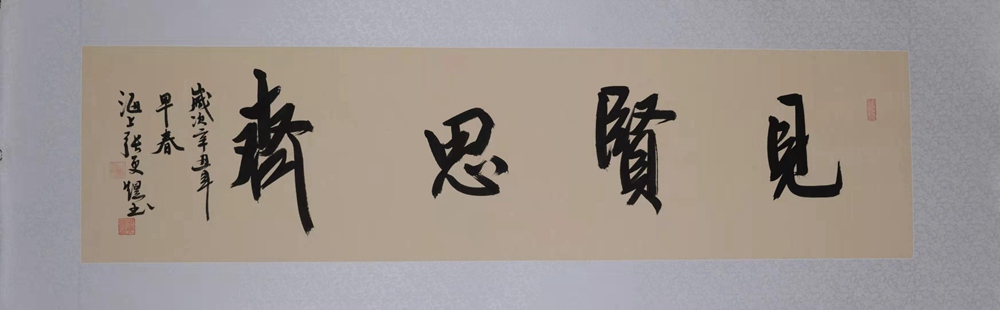 見賢思齊
歲次辛丑年
早春
海上張更惺书